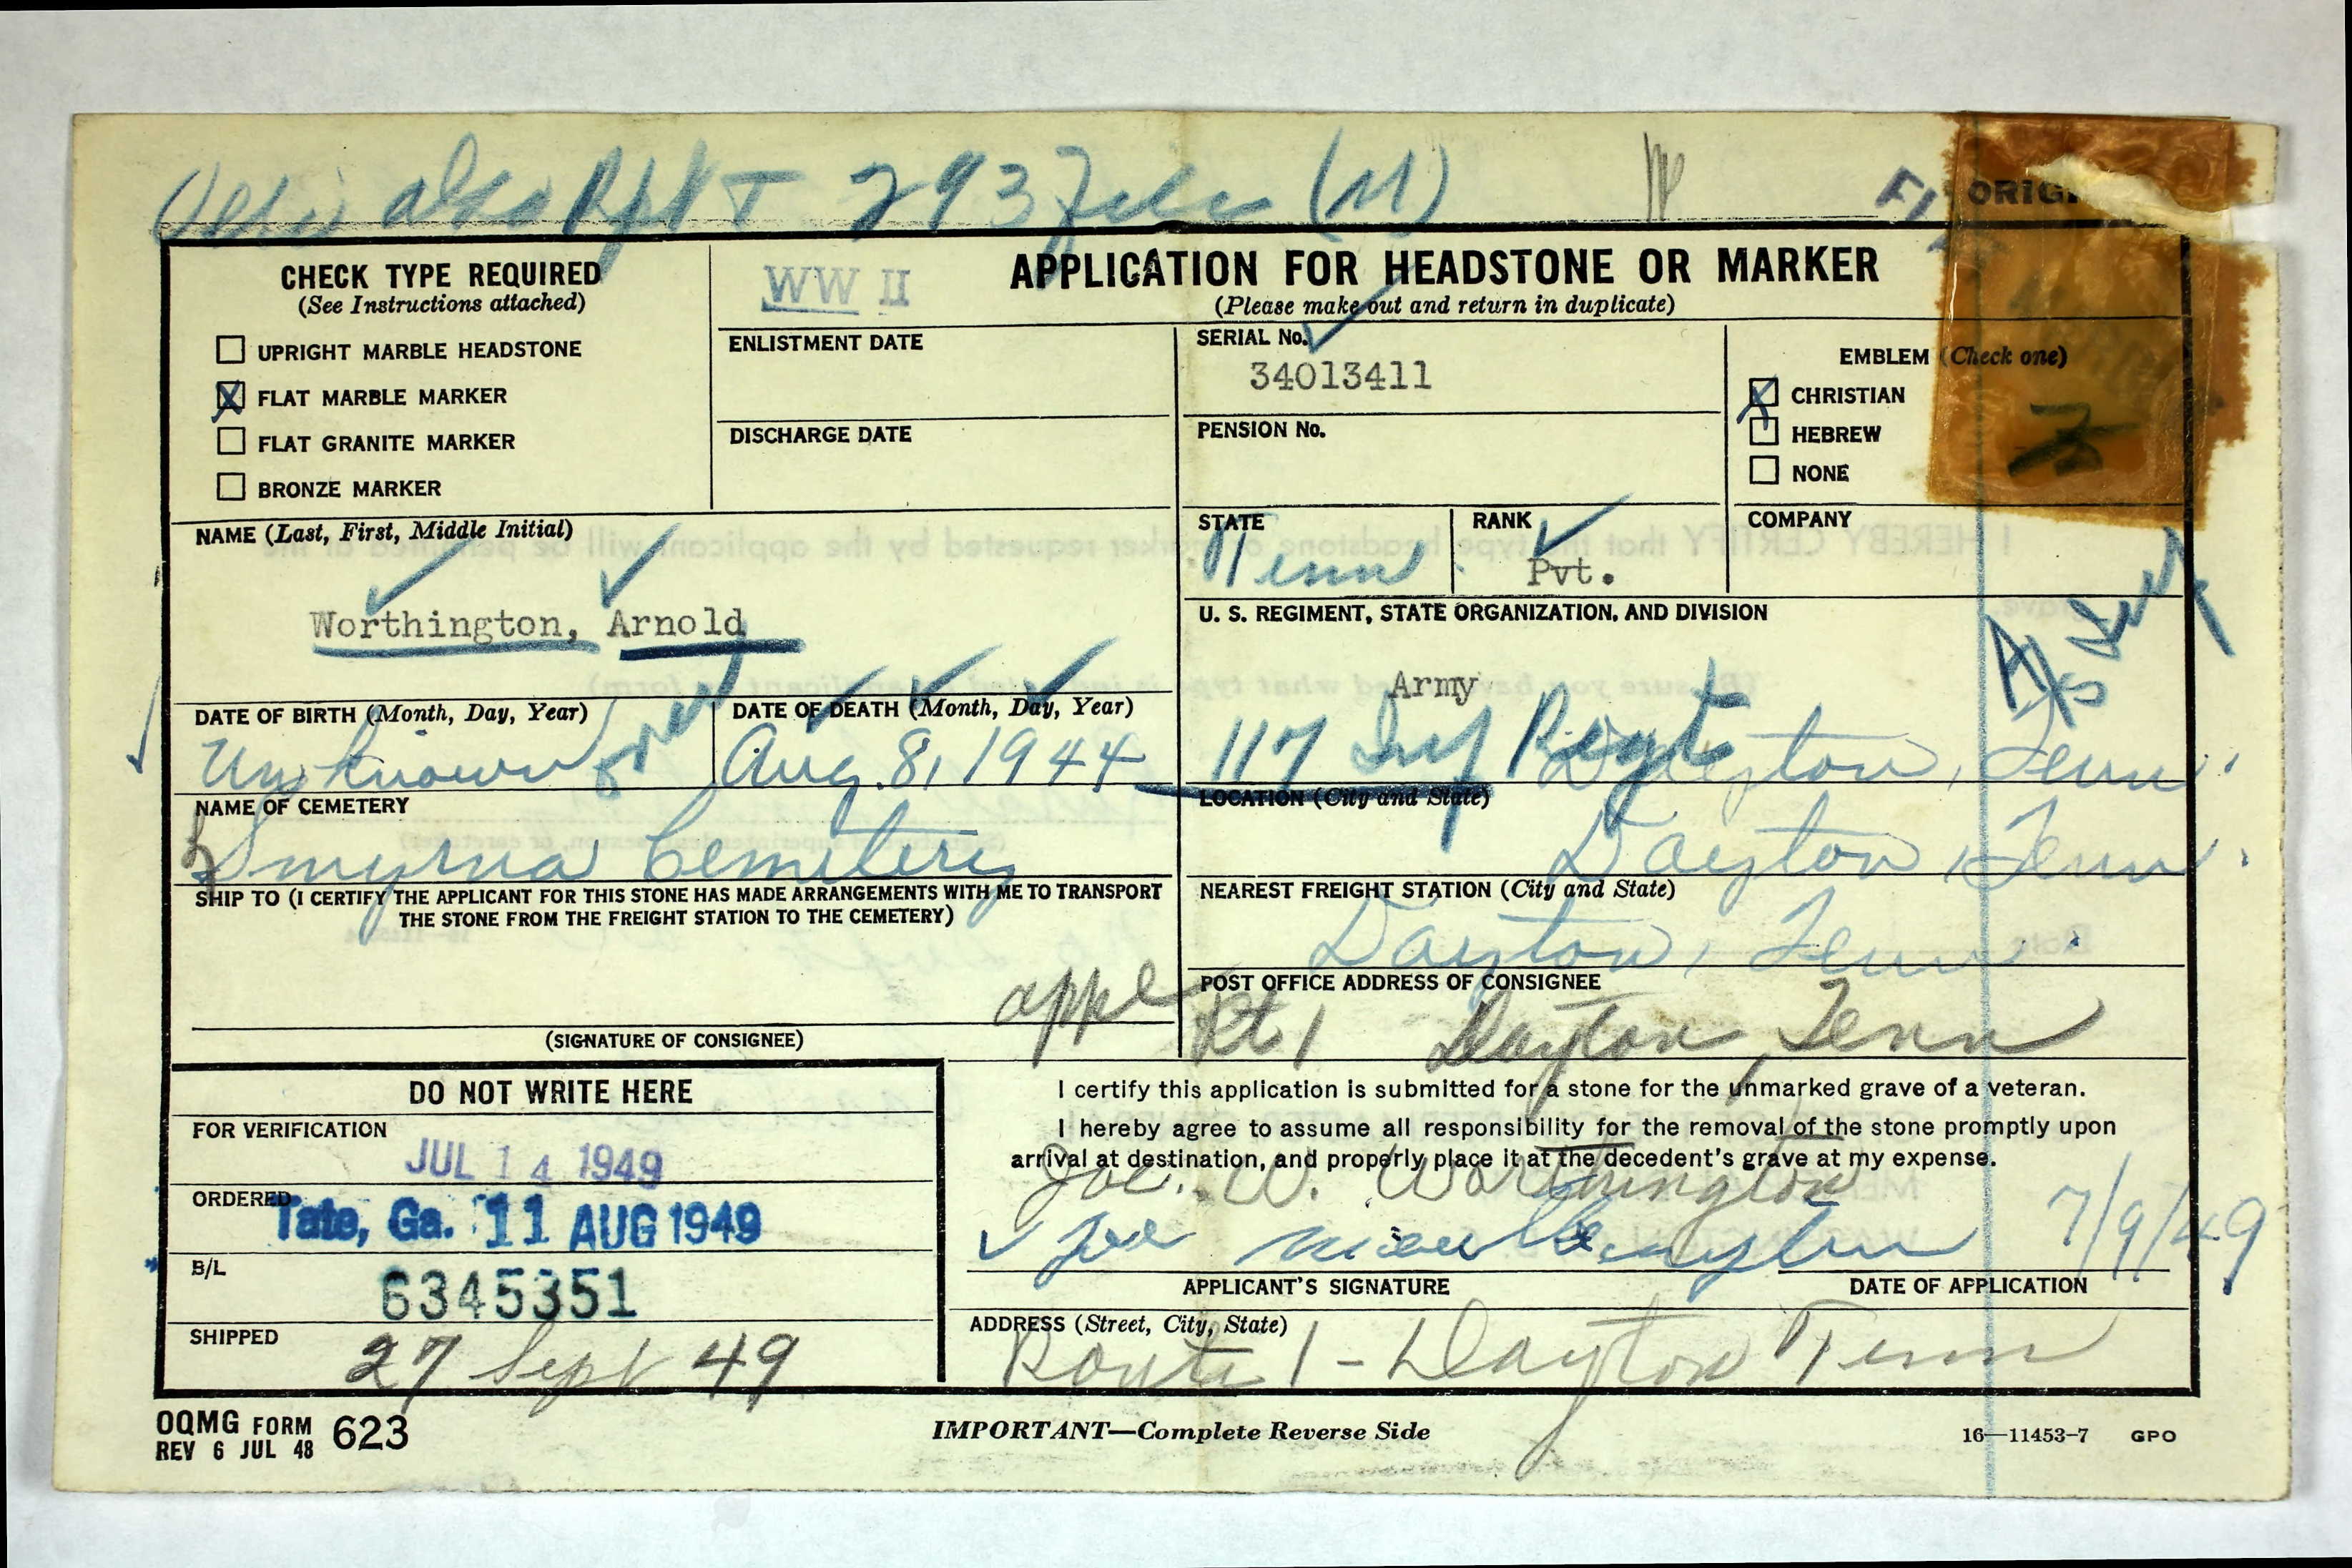 293 (M)
ORIG
CHECK TYPE REQUIRED
(See Instructions attached)
UPRIGHT MARBLE HEADSTONE
X FLAT MARBLE MARKER
FLAT GRANITE MARKER
BRONZE MARKER
WW II
APPLICATION FOR HEADSTONE OR MARKER
(Please make out and return in duplicate)
ENLISTMENT DATE
DISCHARGE DATE
SERIAL No.
34013411
PENSION No.
EMBLEM (Check one)
X CHRISTIAN
HEBREW
NONE
NAME (Last, First, Middle Initial)
Worthington, Arnold
STATE
Tenn
RANK
Pvt.
COMPANY
U. S. REGIMENT, STATE ORGANIZATION, AND DIVISION
Army
117 Inf Regt Dayton, Tenn.
DATE OF BIRTH (Month, Day, Year)
Unknown
DATE OF DEATH (Month, Day, Year)
Aug. 8, 1944
NAME OF CEMETERY
Smyrna Cemetery
LOCATION (City and State)
Dayton, Tenn.
SHIP TO (I CERTIFY THE APPLICANT FOR THIS STONE HAS MADE ARRANGEMENTS WITH ME TO TRANSPORT
THE STONE FROM THE FREIGHT STATION TO THE CEMETERY)
appl
(SIGNATURE OF CONSIGNEE)
NEAREST FREIGHT STATION (City and State)
Dayton, Tenn.
POST OFFICE ADDRESS OF CONSIGNEE
Rt 1 Dayton, Tenn
DO NOT WRITE HERE
FOR VERIFICATION
JUL 14 1949
ORDERED
Tate, Ga. 11 AUG 1949
B/L
6345351
SHIPPED
27 Sept 49
I certify this application is submitted for a stone for the unmarked grave of a veteran.
I hereby agree to assume all responsibility for the removal of the stone promptly upon
arrival at destination, and properly place it at the decedent's grave at my expense.
Joe. W. Worthington
Joe 7/9/49
APPLICANT'S SIGNATURE DATE OF APPLICATION
ADDRESS (Street, City, State)
Route 1 - Dayton Tenn
OQMG FORM 623
REV 6 JUL 48
IMPORTANT—Complete Reverse Side
16—11453-7 GPO